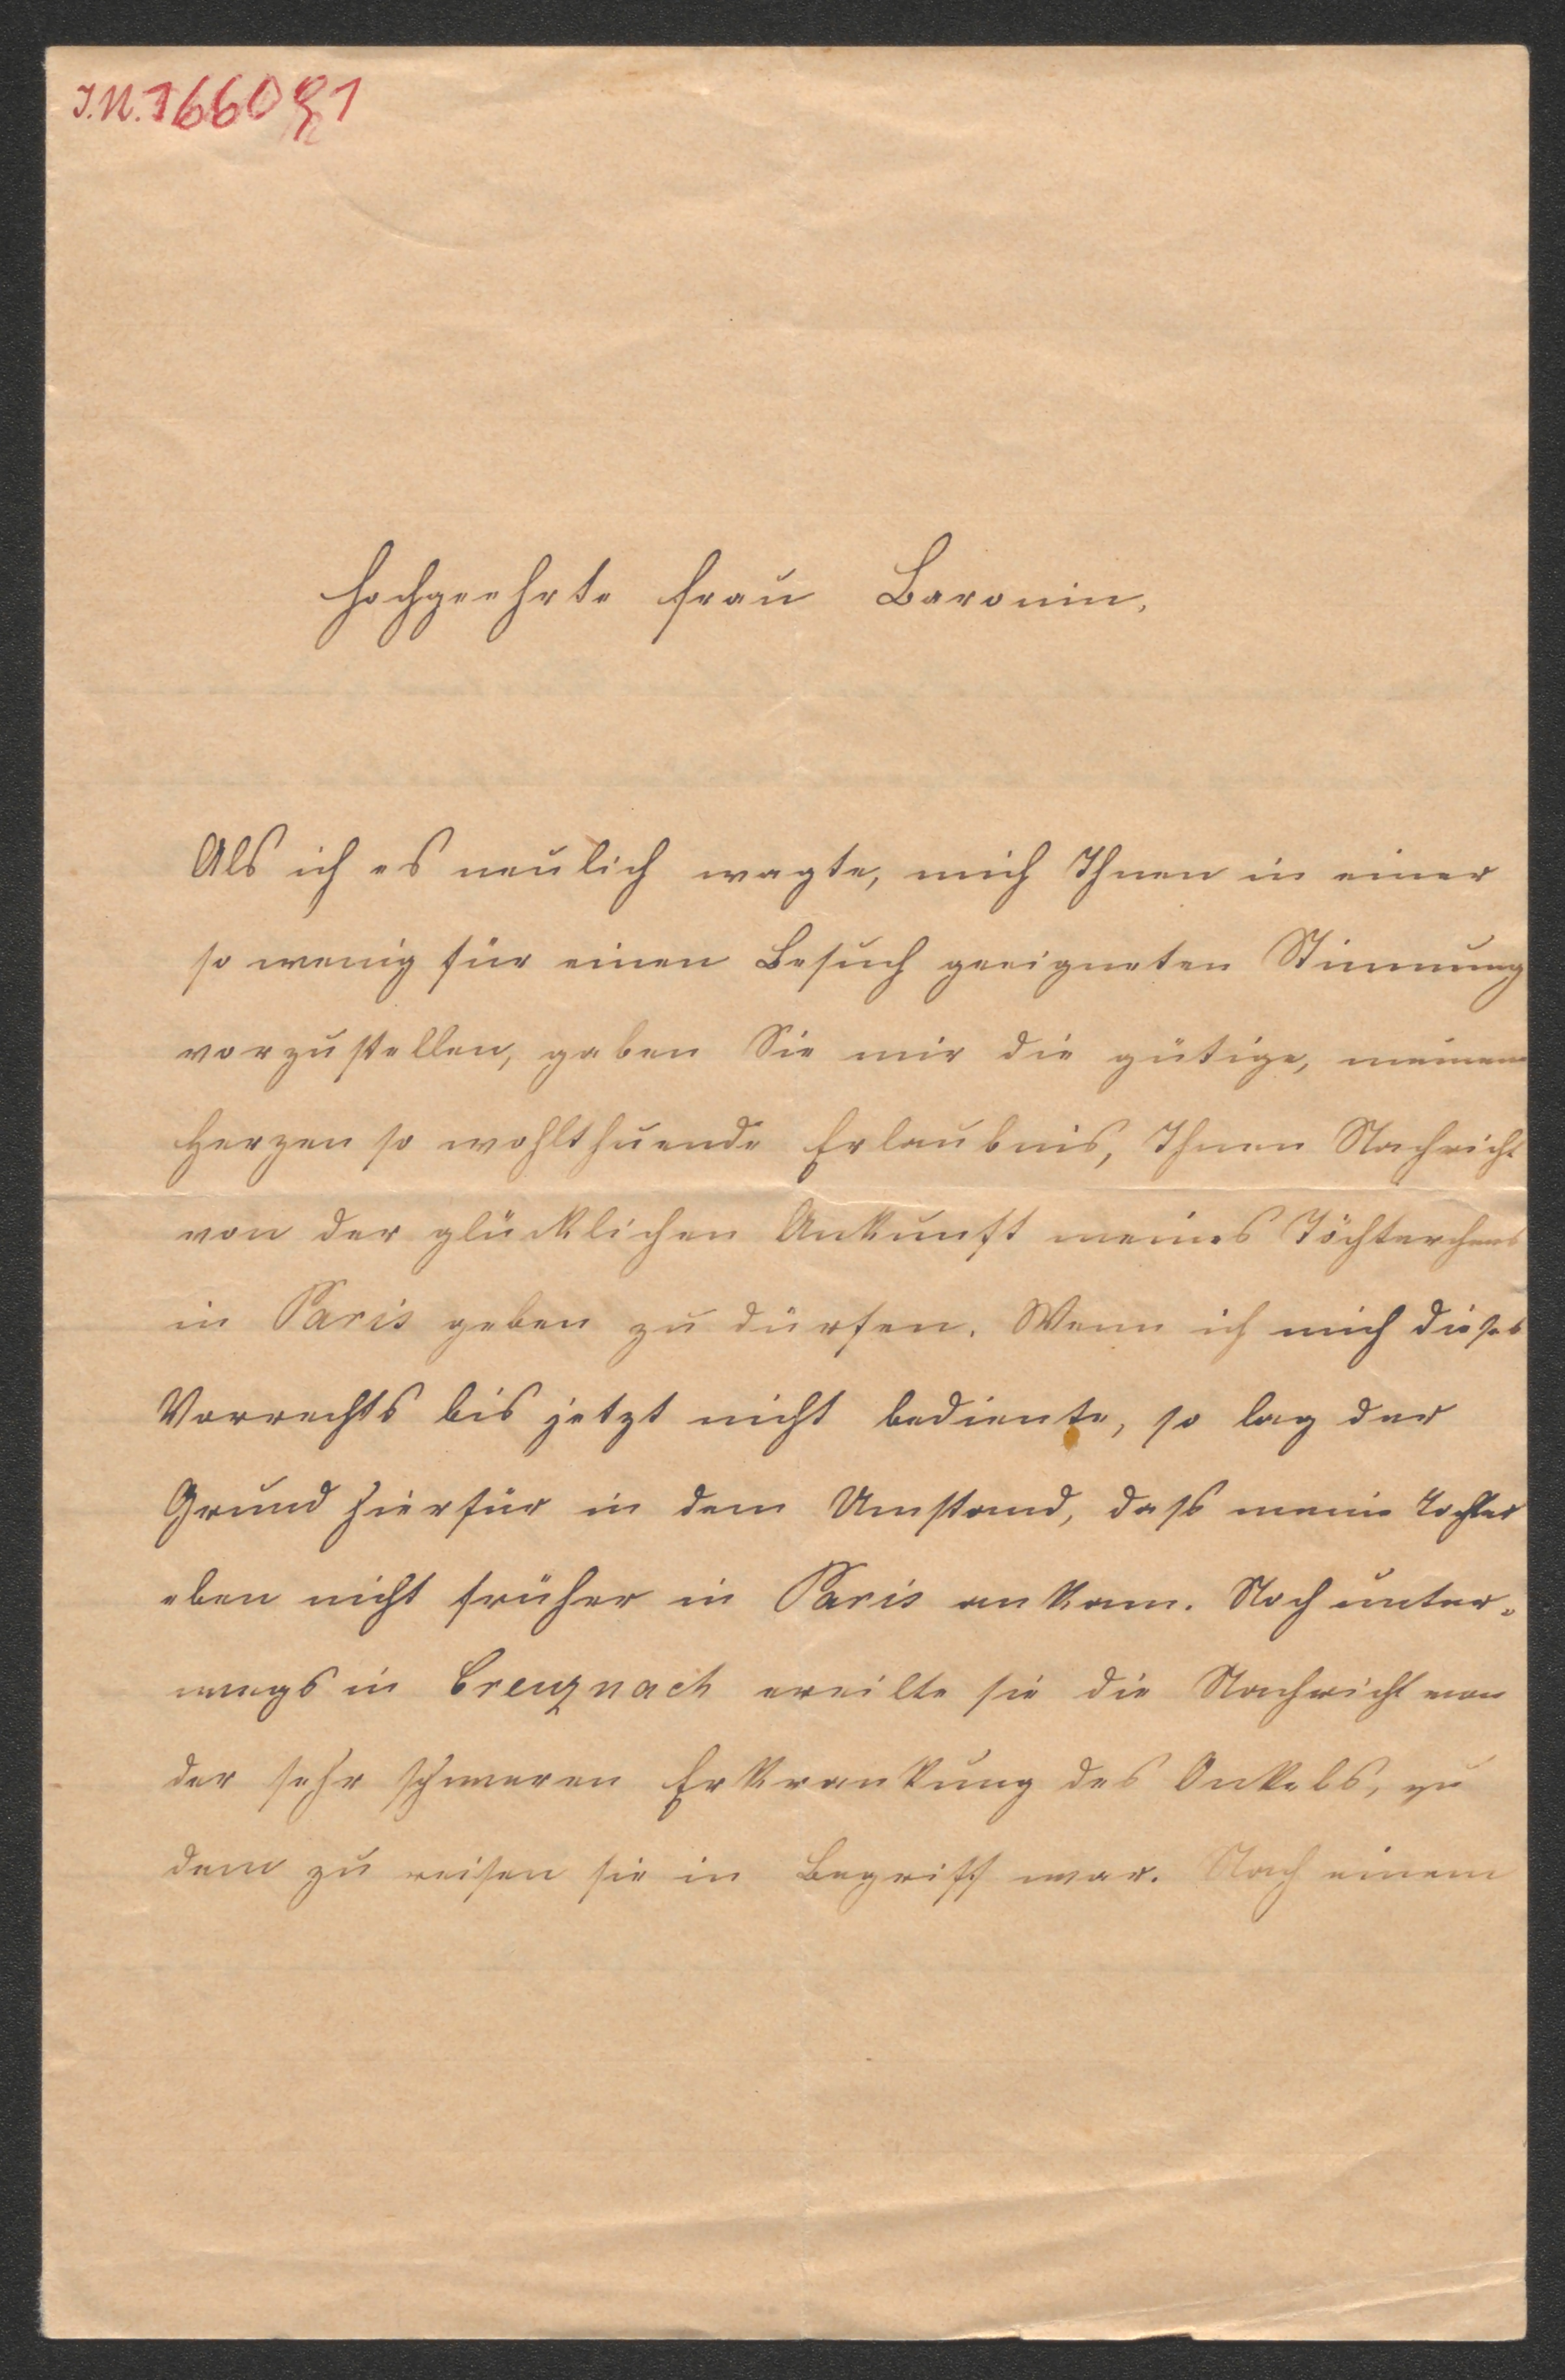 I.N. 166091
Hochgeehrte Frau Baronin,
Als ich es neulich wagte, mich Ihnen in einer
so wenig für einen Besuch geeigneten Stimmung
vorzustellen, gaben Sie mir die gütige, meinem
Herzen so wohlthuende Erlaubnis, Ihnen Nachricht
von der glücklichen Ankunft meines Töchterchens
in Paris geben zu dürfen. Wenn ich mich dieses
Vorrechts bis jetzt nicht bediente, so lag der
Grund hierfür in dem Umstand, dass meine Tochter
eben nicht früher in Paris ankam. Noch unter-
wegs in Creuznach ereilte sie die Nachricht von
der sehr schweren Erkrankung des Onkels, zu
dem zu reisen sie in Begriff war. Nach einem